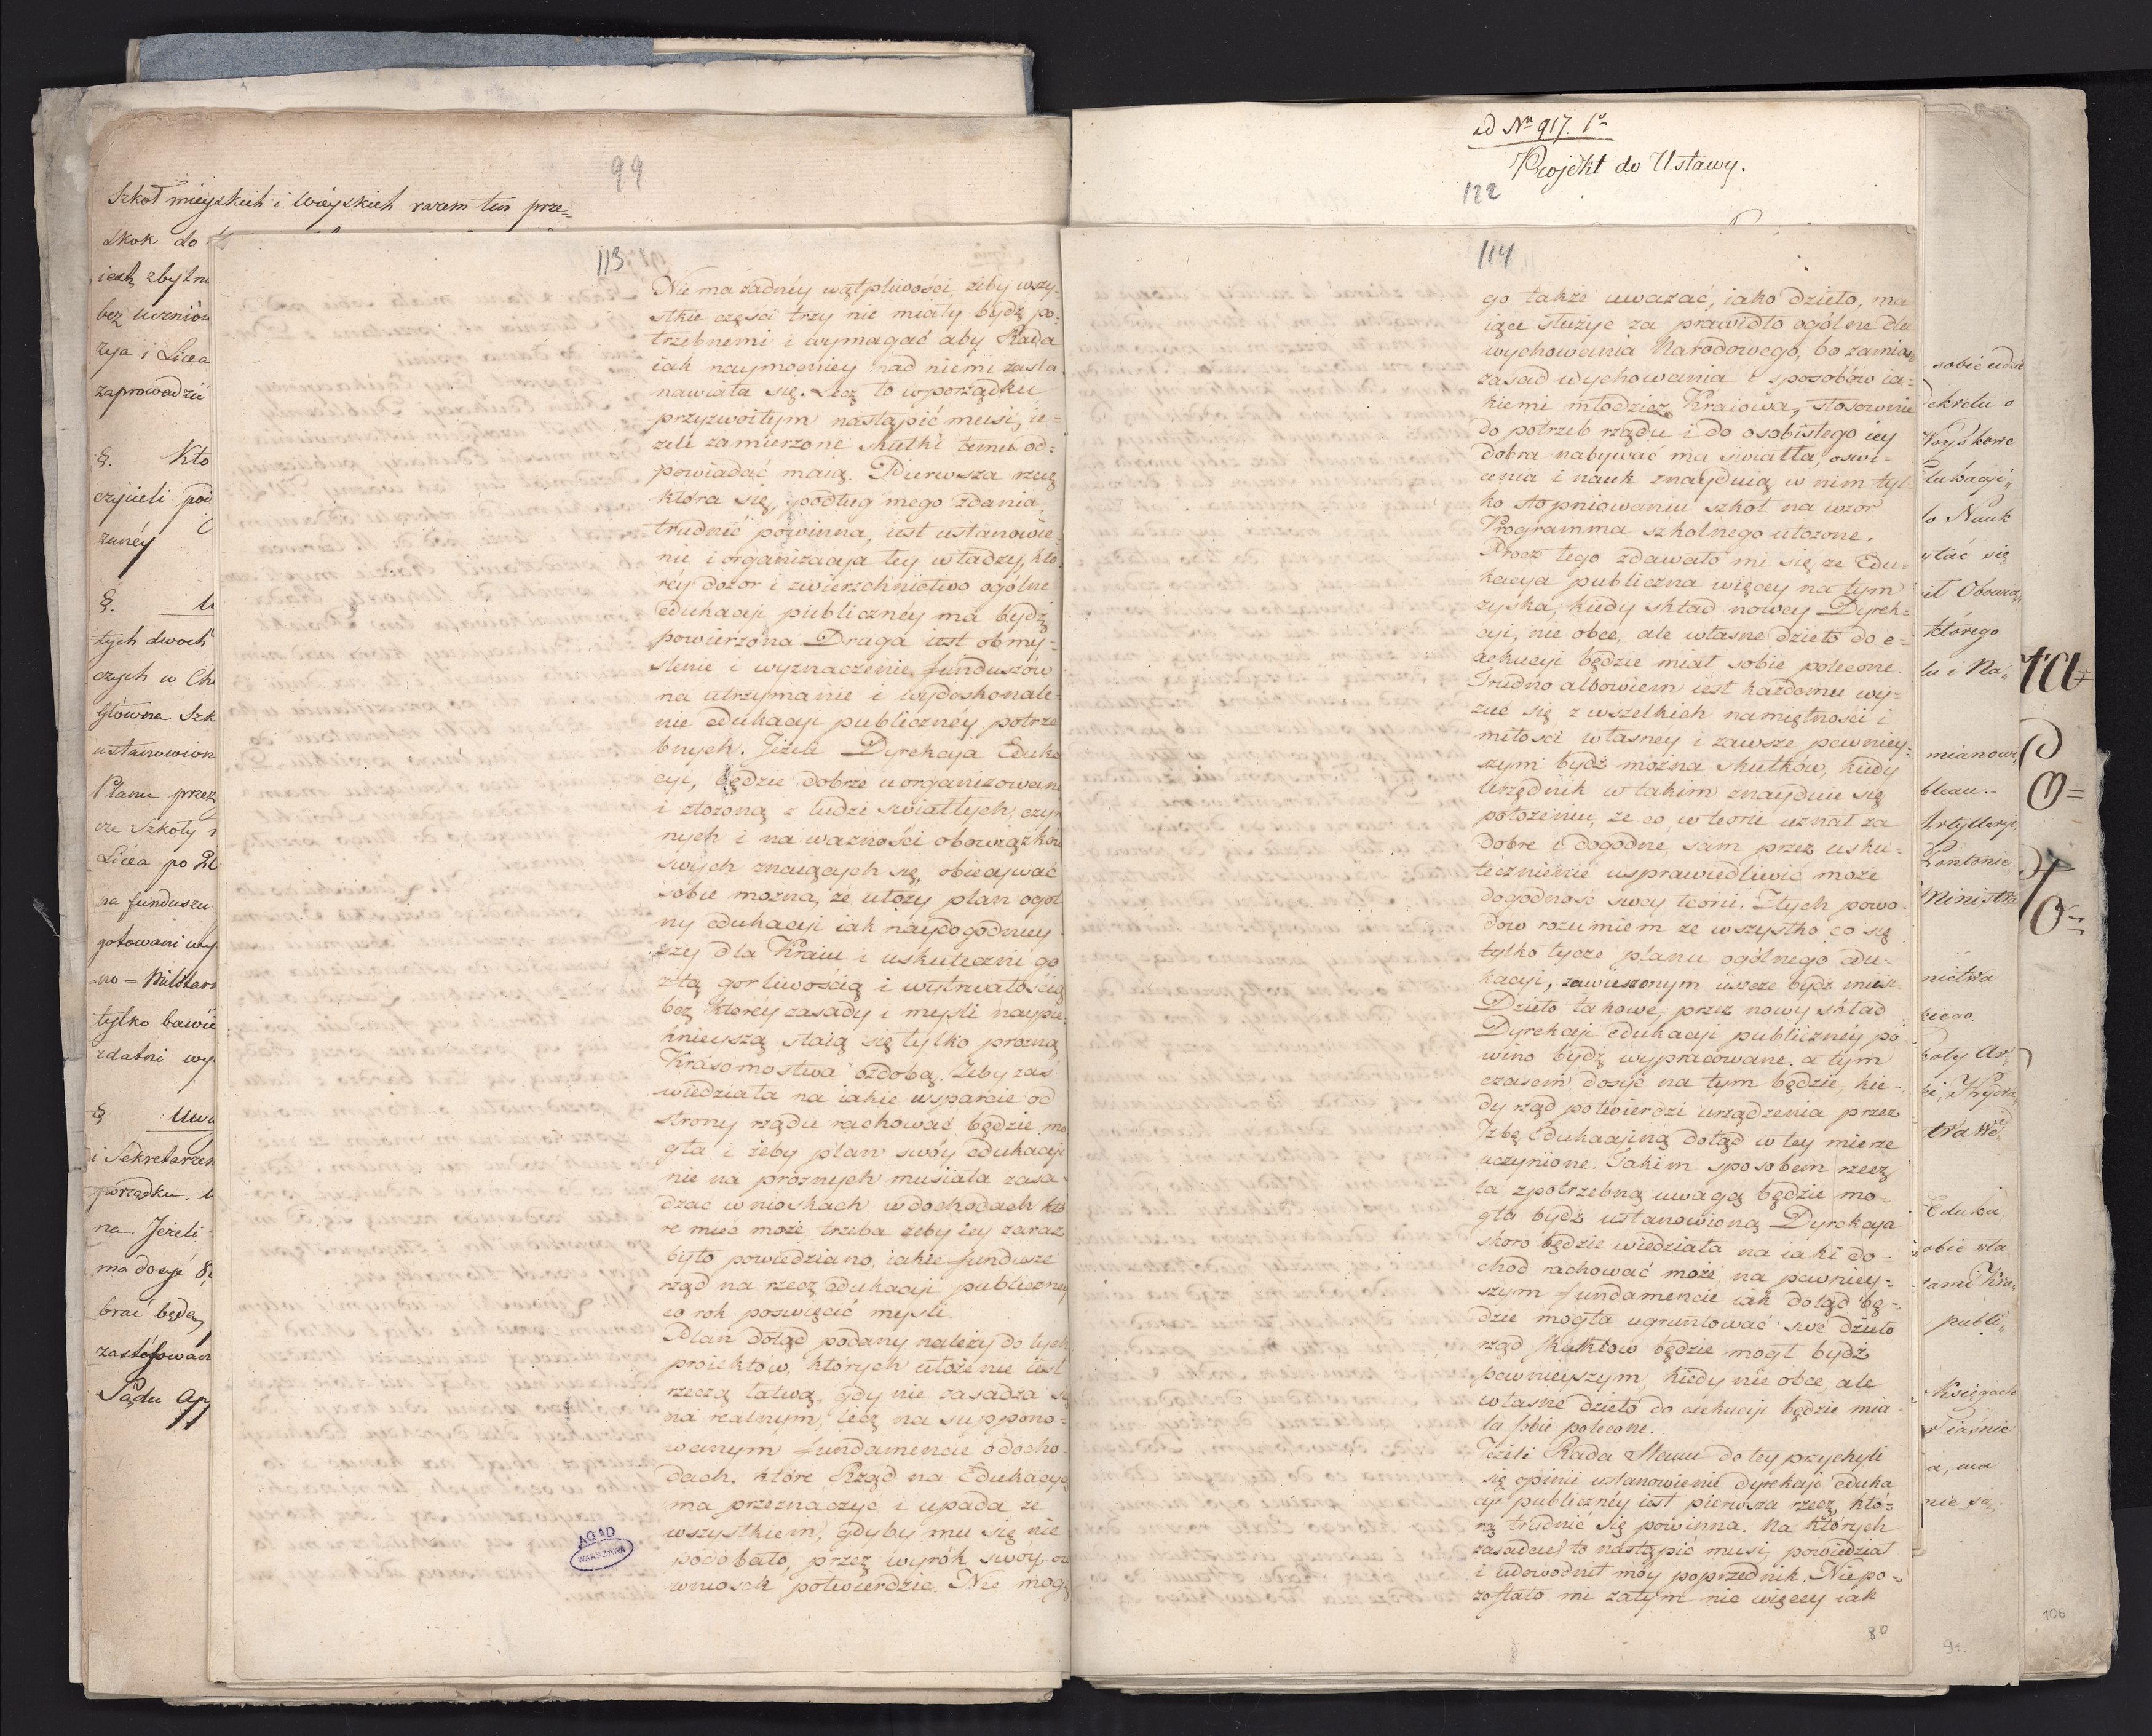 99
Szkoł mieyskich i Wieyskich razem ten prze=
skok do
iest, zbytni
bez Uczniów
rya i Licea
zaprowadzić
§. Kto
czycieli pod
zaney
§.
tych dwoch
czych w Che
Główna Szk
ustanowion
Planu przez
cze Szkoły
Licea po
na funduszu
gotowani
no = Militarn
tylko bawie
zdatni wy
§ Uwa
i Sekretarzem
porządku.
na. Jeżeli
ma dosyć
brać będą,
zastosowan
Sądu Ap
113
Nie ma żadnéy wątpliwości, żeby wszy-
stkie części trzy nie miały bydź po-
trzebnemi i wymagać aby Rada
iak naymocniey nad niemi zasta-
nawiała się. Lecz to w porządku
przyzwoitym nastąpić musi, ie=
żeli zamierzone skutki temu od=
powiadać maią. Pierwsza rzecz
która się, podług mego zdania,
trudnić powinna, iest ustanowie-
nie i organizacya tey władzy, kto-
réy dozor i zwierzchnictwo ogólne
edukacyi publicznéy ma bydź
powierzona Druga iest obmy-
slenie i wyznaczenie funduszów
na utrzymanie i wydoskonale-
nie edukacyi publicznéy potrze
bnych. Jeżeli Dyrekcya Eduka
cyi, będzie dobrze uorganizowana
i złożoną z ludzi światłych, czyn
nych i na ważności obowiązków
swych znaiących się, obiecywać
sobie można, że ułoży plan ogol
ny edukacyi iak naydogodniey-
szy dla Kraiu i uskuteczni go
z tą gorliwością i wytrwałością
bez któréy zasady i mysli naypię-
knieyszą staią się tylko prozną
Krasomostwa ozdobą. Żeby zas
wiedziała na iakie wsparcie od
strony rządu rachować będzie mo
gła i żeby plan swóy edukacyi
nie na próznych musiała zasa-
dzać wnioskach w dochodach któ
re mieć może, trzeba żeby iey zaraz
było powiedziano, iakie fundusze
rząd na rzecz edukacyi publiczney
co rok poswięcić mysli.
Plan dotąd podany należy do tych
proiektow, których ułożenie iest
rzeczą łatwą, gdy nie zasadza się
na realnym, lecz na suppono=
wanym fundamencie o docho-
dach, które Rząd na Edukacyą
ma przeznaczyc i upada ze
wszystkiem, gdyby mu się nie
podobało, przez wyrok swóy, ow
wniosek potwierdzic. Nie mogę
AGAD
WARSZAWA
ad Nr 917. 1o
Projekt do Ustawy.
122
114
go także uwazać, iako dzieło, ma
iące służyc za prawidło ogólne dla
wychowania Narodowego, bo zamiast
zasad wychowania i sposobów ia=
kiemi młodzież Kraiowa, stosownie
do potrzeb rządu i do osobistego iey
dobra nabywać ma światła, oswi-
cenia i nauk znayduią w nim tyl-
ko stopniowaniu szkoł na wzor
Programma szkolnego ułożone.
Procz tego zdawało mi się ze Edu-
kacya publiczna więcey na tym
zyska, kiedy skład nowey Dyrek-
cyi, nie obce, ale własne dzieło do e-
xekucyi będzie miał sobie polecone.
Trudno albowiem iest każdemu wy-
zuć się z wszelkich namiętności i
miłosci własney i zawsze pewniey-
szym bydź można skutków, kiedy
Urzędnik w takim znayduie się
położeniu, że co w teorii uznał za
dobre i dogodne, sam przez usku-
tecznienie usprawiedliwić może
dogodność swey teorii. Z tych powo-
dów rozumiem ze wszystko co się
tylko tycze planu ogólnego edu-
kacyi, zawieszonym ieszcze bydź musi.
Dzieło takowe, przez nowy skład
Dyrekcyi edukacyi publicznéy po
winno bydź wypracowane, a tym
czasem dosyć na tym będzie, kie-
dy rząd potwierdzi urządzenia przez
Izbę Edukacyiną dotąd w tey mierze
uczynione. Takim sposobem rzecz
ta z potrzebną uwagą będzie mo-
gła bydź ustanowioną Dyrekcya
skoro będzie wiedziała na iaki do-
chod rachować może, na pewniey-
szym fundamencie iak dotąd bę-
dzie mogła ugruntować swe dzieło
rząd skutkow będzie mogł bydź
pewnieyszym, kiedy nie obce, ale
własne dzieło do exekucyi będzie mia
ła sobie polecone.
Jeżeli Rada Stanu do tey przychyli
się opinii ustanowienie dyrekcyi eduka
cyi publicznéy iest pierwsza rzecz, któ-
rą trudnić się powinna. Na których
zasadach to nastąpić musi powiedział
i udowodnił móy poprzednik. Niepo-
zostało mi zatym nic więcey iak
80
sobie
ekretu o
Woyskowe
Edukacyi
do Nauk
ytać się
którego
lu i Na
mianow
bleau.
Artylleryi
Ministra
nictwa
kiego
koły Ar
Eduka
obie wła
publi
Xsięgach
iaśnie
nie są
94.
106